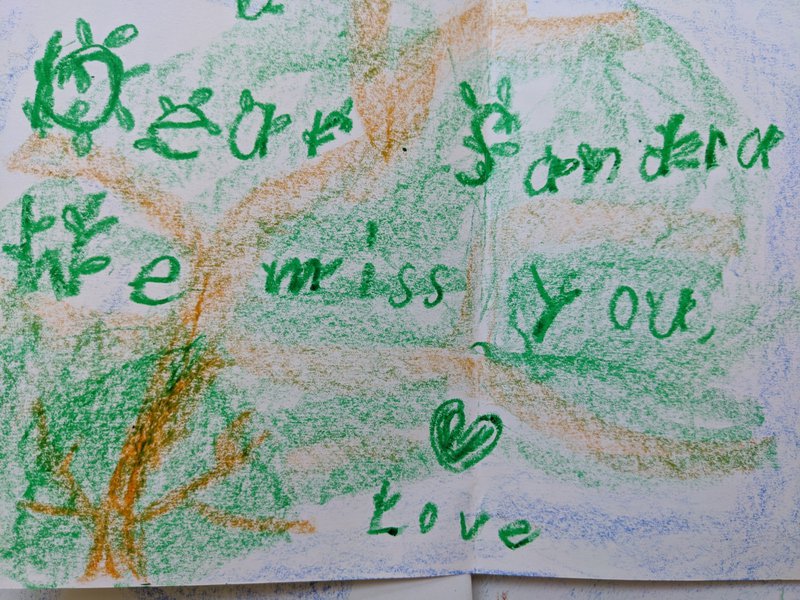 Dear Sandera
We miss you,
Love